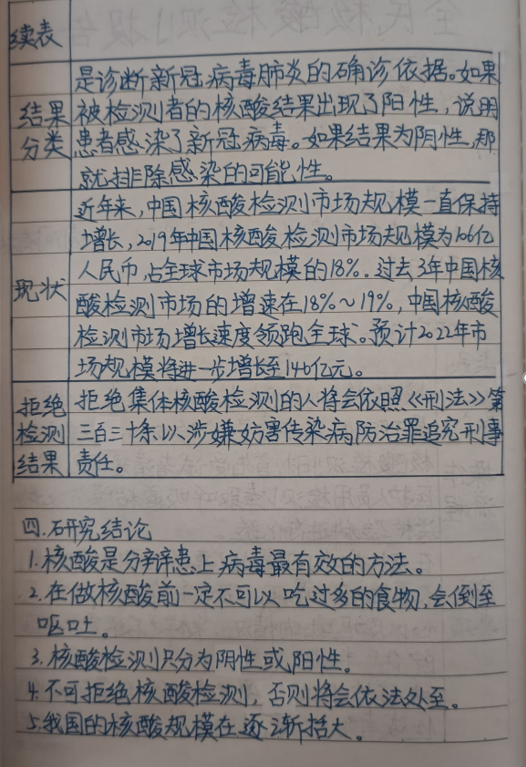 续表
结果
分类
是诊断新冠病毒肺炎的确诊依据。如果
被检测者的核酸结果出现了阳性，说明
患者感染了新冠病毒。如果结果为阴性，那
就排除感染的可能性。
现状
近年来，中国核酸检测市场规模一直保持
增长，2019年中国核酸检测市场规模为106亿
人民币，占全球市场规模的18%．过去3年中国核
酸检测市场的增速在18%～19%，中国核酸
检测市场增长速度领跑全球。预计2022年市
场规模将进一步增长至146亿元。
拒绝
检测
结果
拒绝集体核酸检测的人将会依照《刑法》第
三百三十条以涉嫌妨害传染病防治罪追究刑事
责任。
四.研究结论
1.核酸是分辨患上病毒最有效的方法。
2.在做核酸前一定不可以吃过多的食物，会倒至
呕吐。
3.核酸检测只分为阴性或阳性。
4.不可拒绝核酸检测，否则将会依法处至。
5.我国的核酸规模在逐渐括大。